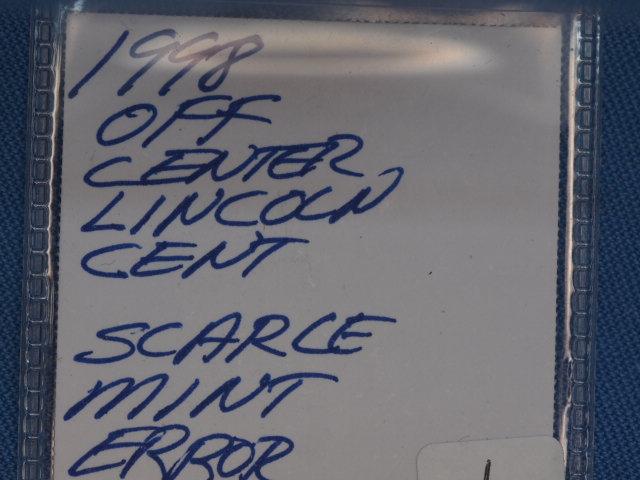 1998
OFF
CENTER
LINCOLN
CENT
SCARCE
MINT
ERROR